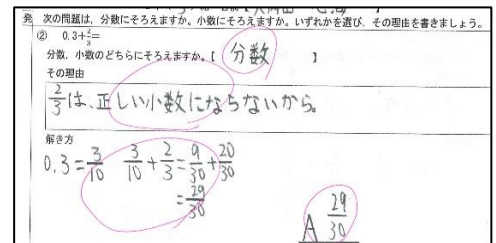 発 次の問題は，分数にそろえますか。小数にそろえますか。いずれかを選び，その理由を書きましょう。
② 0.3+2/3=
分数，小数のどちらにそろえますか。【 分数 】
その理由
2/3は、正しい小数にならないから。
解き方
0.3=3/10 3/10+2/3=9/30+20/30
=29/30
A 29/30